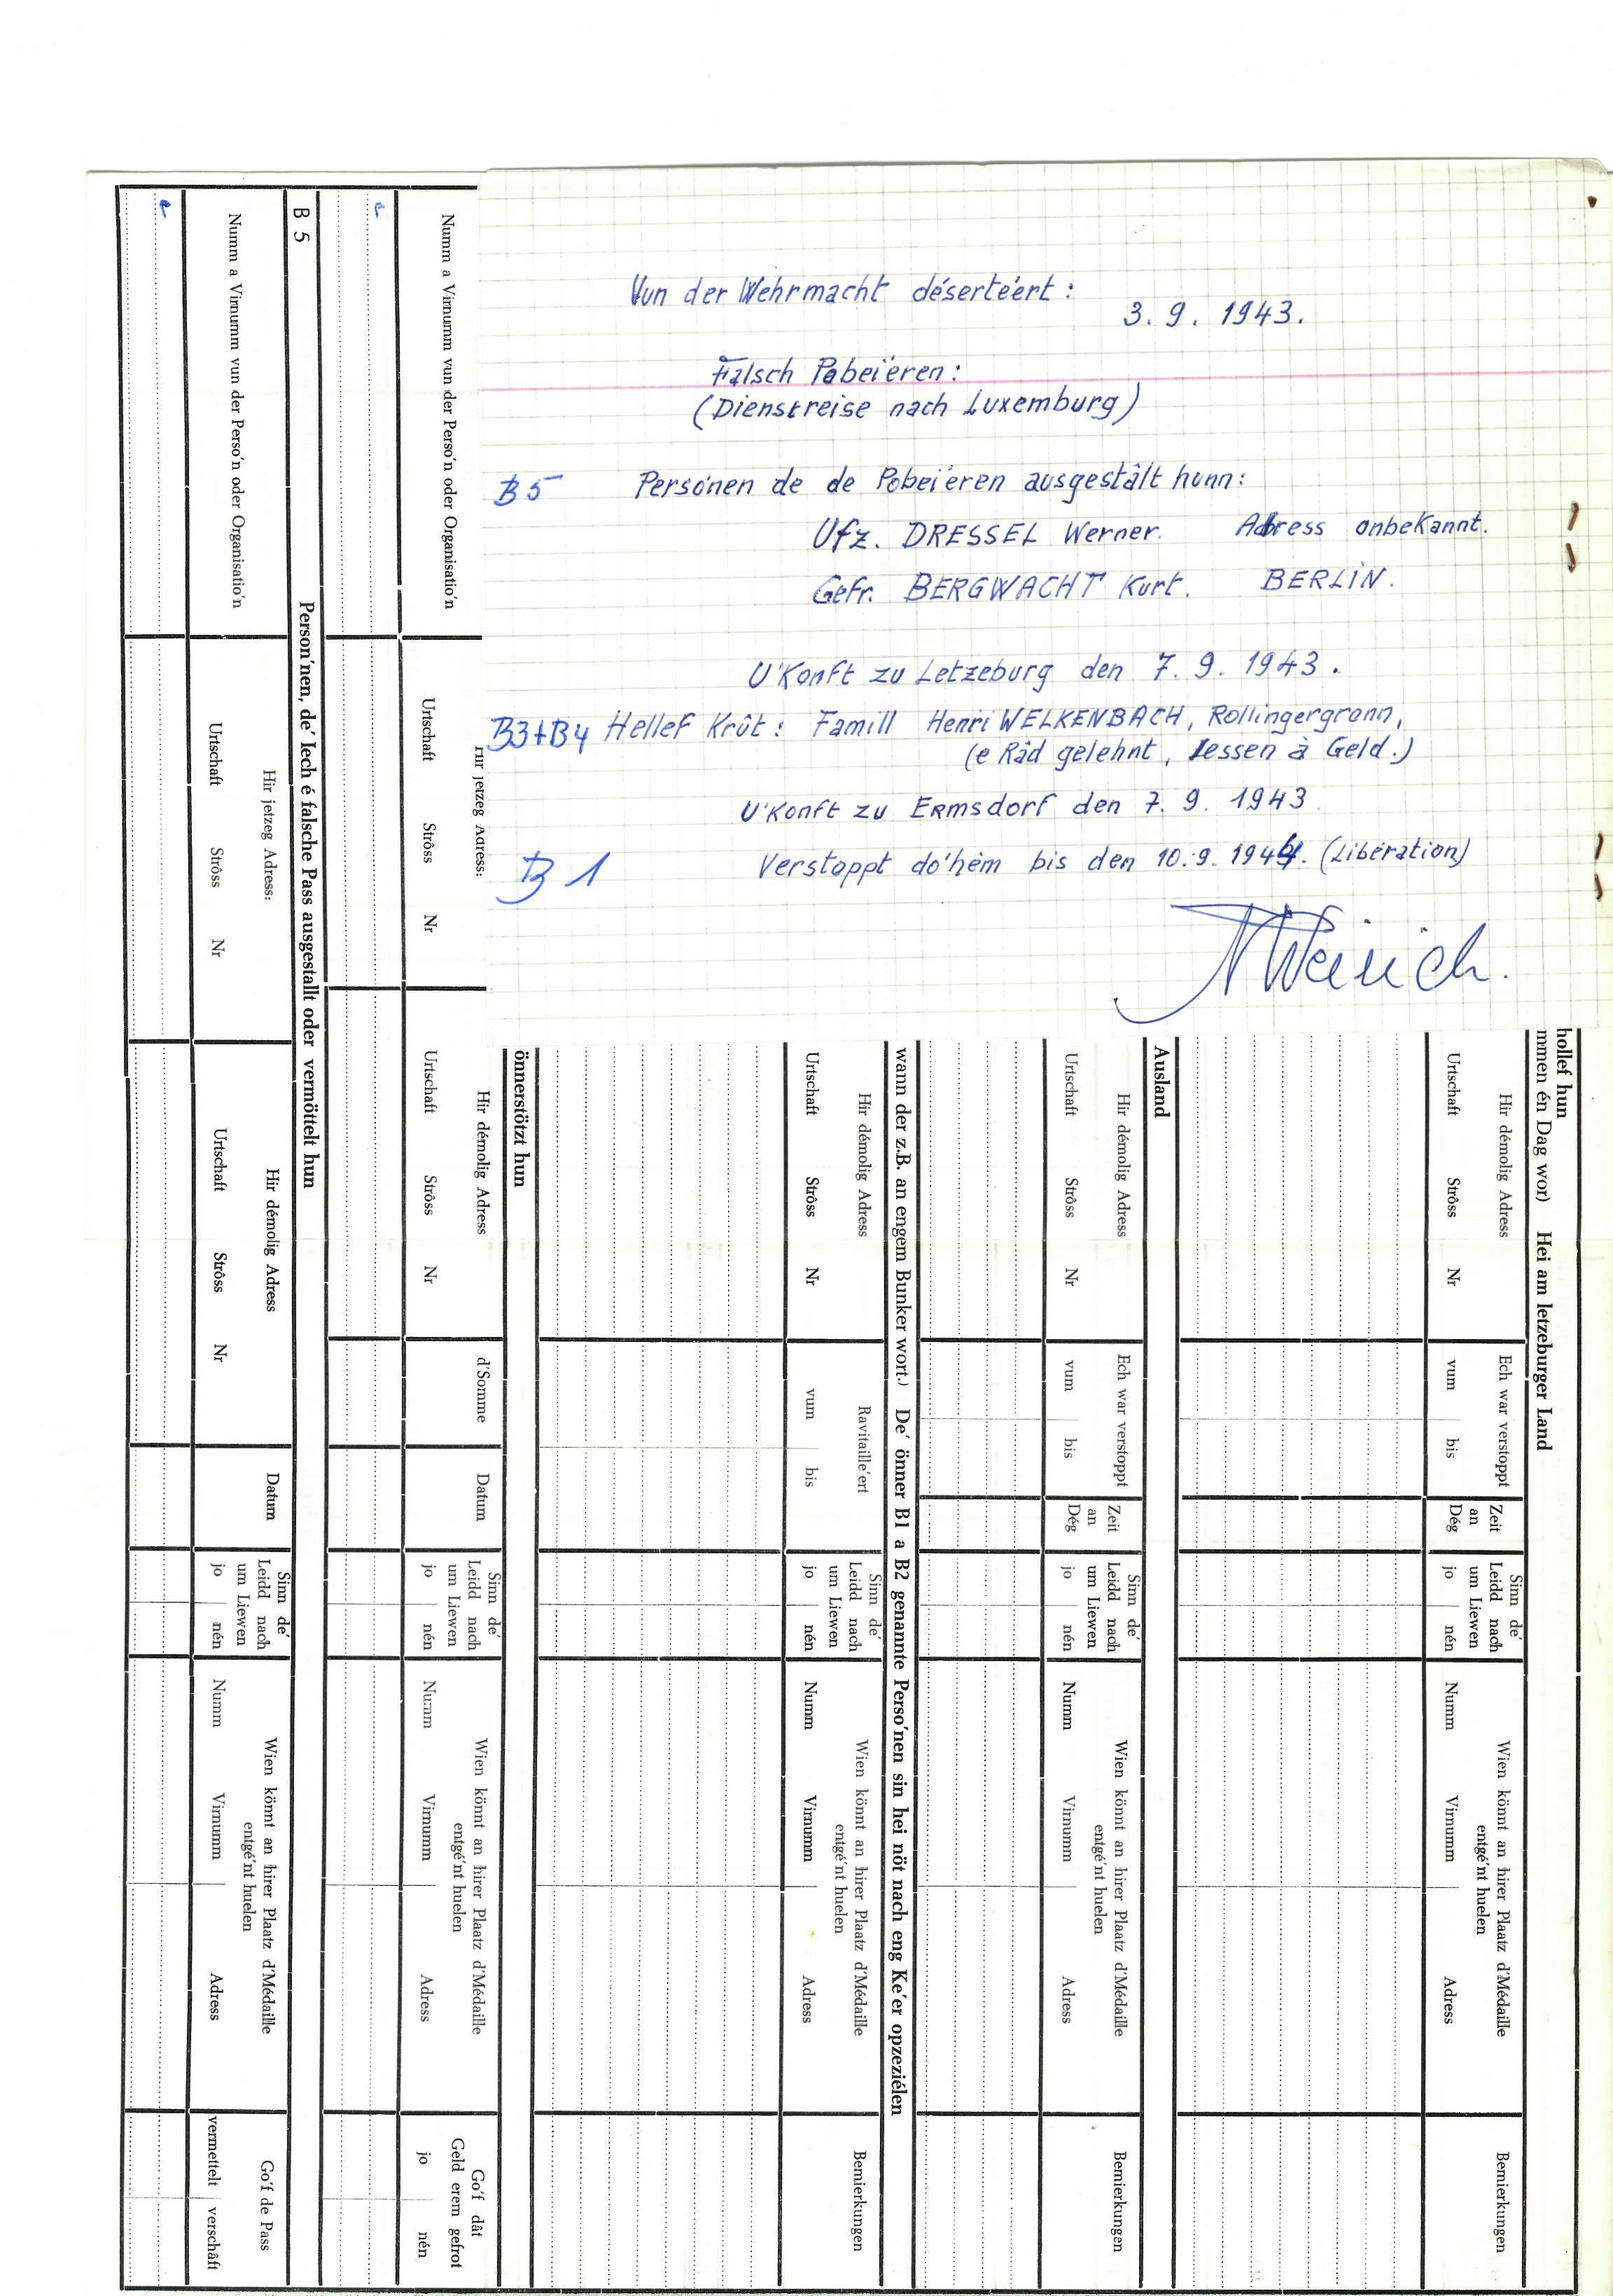 Vun der Wehrmacht déserte'ert :
3. 9. 1943.
Falsch Pabei'eren :
(Dienstreise nach Luxemburg)
B 5 Perso'nen de de Pobei'eren ausgestâlt hunn :
Ufz. DRESSEL Werner. Adress onbekannt.
Gefr. BERGWACHT Kurt. BERLIN.
U'Konft zu Letzeburg den 7. 9. 1943.
B3+B4 Hellef Krût : Famill Henri WELKENBACH, Rollingergronn,
(e Râd gelehnt, Iessen à Geld.)
U'Konft zu Ermsdorf den 7. 9. 1943
B 1 Verstoppt do'hém bis den 10. 9. 1944. (Libération)
hollef hun
mmen én Dag wor) Hei am letzeburger Land
Hir démolig Adress
Urtschaft Strôss Nr
Ech war verstoppt
vum bis
Zeit
an
Dég
Sinn de'
Leidd nach
um Liewen
jo nén
Wien könnt an hirer Plaatz d'Médaille
entgé'nt huelen
Numm Virnumm Adress
Bemierkungen
Ausland
Hir démolig Adress
Urtschaft Strôss Nr
Ech war verstoppt
vum bis
Zeit
an
Dég
Sinn de'
Leidd nach
um Liewen
jo nén
Wien könnt an hirer Plaatz d'Médaille
entgé'nt huelen
Numm Virnumm Adress
Bemierkungen
wann der z.B. an engem Bunker wort.) De' önner B1 a B2 genannte Perso'nen sin hei nöt nach eng Ke'er opzeziélen
Hir démolig Adress
Urtschaft Strôss Nr
Ravitaille'ert
vum bis
Sinn de'
Leidd nach
um Liewen
jo nén
Wien könnt an hirer Plaatz d'Médaille
entgé'nt huelen
Numm Virnumm Adress
Bemierkungen
önnerstötzt hun
Numm a Virnumm vun der Perso'n oder Organisatio'n
Hir jetzeg Adress:
Urtschaft Strôss Nr
Hir démolig Adress
Urtschaft Strôss Nr
d'Somme
Datum
Sinn de'
Leidd nach
um Liewen
jo nén
Wien könnt an hirer Plaatz d'Médaille
entgé'nt huelen
Numm Virnumm Adress
Go'f dât
Geld erem gefrot
jo nén
B 5 Person'nen, de' Iech é falsche Pass ausgestallt oder vermöttelt hun
Numm a Virnumm vun der Perso'n oder Organisatio'n
Hir jetzeg Adress:
Urtschaft Strôss Nr
Hir démolig Adress
Urtschaft Strôss Nr
Datum
Sinn de'
Leidd nach
um Liewen
jo nén
Wien könnt an hirer Plaatz d'Médaille
entgé'nt huelen
Numm Virnumm Adress
Go'f de Pass
vermettelt verschâft